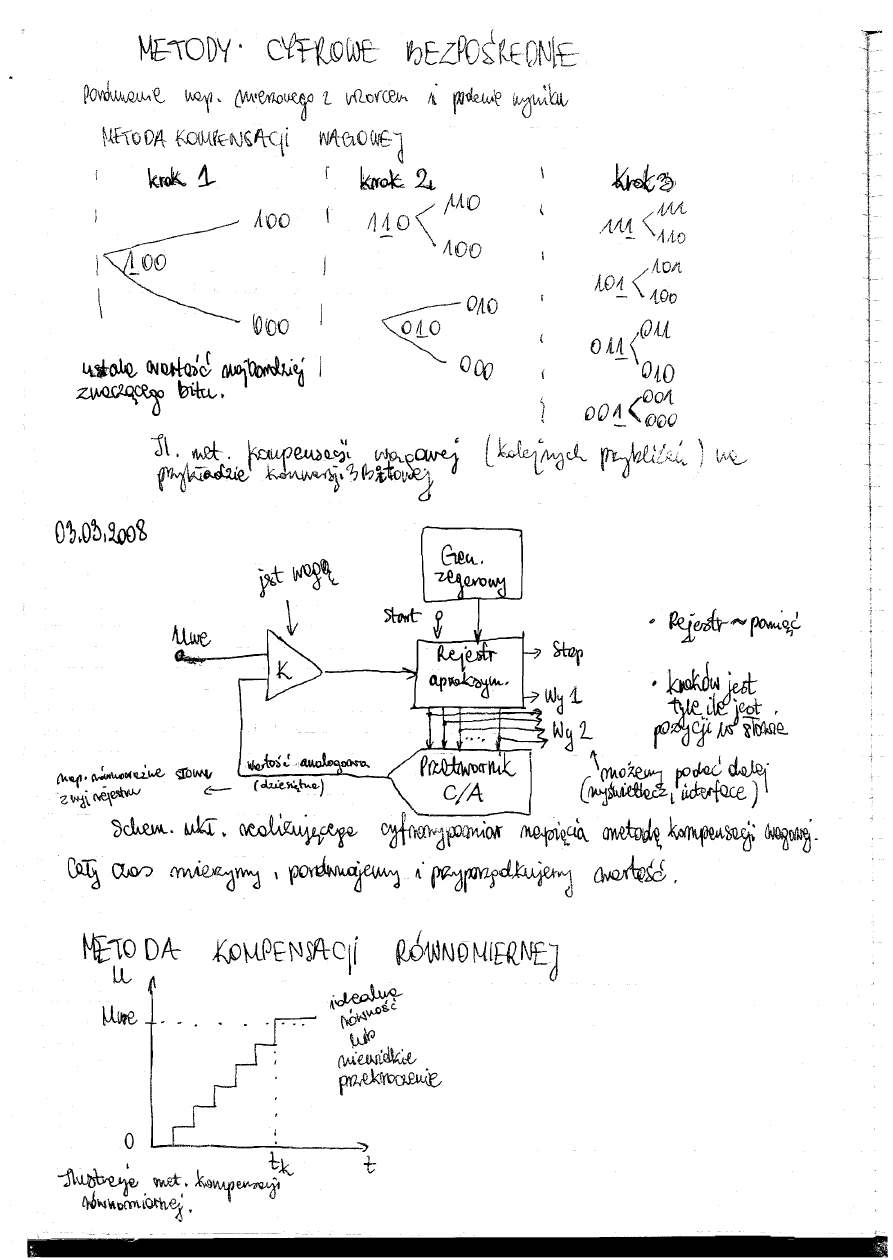 METODY CYFROWE BEZPOŚREDNIE
Porównanie nap. mierzonego z wzorcem i podanie wyniku
METODA KOMPENSACJI WAGOWEJ
krok 1
100
100
000
ustala wartość najbardziej
znaczącego bitu.
krok 2
110
110
100
010
010
000
krok 3
111
111
110
101
101
100
011
011
010
001
001
000
Il. met. kompensacji wagowej (kolejnych przybliżeń) na
przykładzie konwersji 3 Bitowej
03.03.2008
jst wagą
Gen.
zegarowy
Start
Uwe
K
Rejestr
aproksym.
Stop
Wy 1
Wy 2
....
• Rejestr ~ pamięć
• kroków jest
tyle ile jest
pozycji w słowie
wartość analogowa
(dziesiętna)
Przetwornik
C/A
możemy podać dalej
(wyświetlacz, interface)
nap. równoważne słowu
z wyj rejestru
Schem. ukł. realizującego cyfrowy pomiar napięcia metodą kompensacji wagowej.
Cały czas mierzymy, porównujemy i przyporządkujemy wartość.
METODA KOMPENSACJI RÓWNOMIERNEJ
U
Uwe
idealna
równość
lub
niewielkie
przekroczenie
0
tk
t
Ilustracja met. kompensacji
równomiernej.